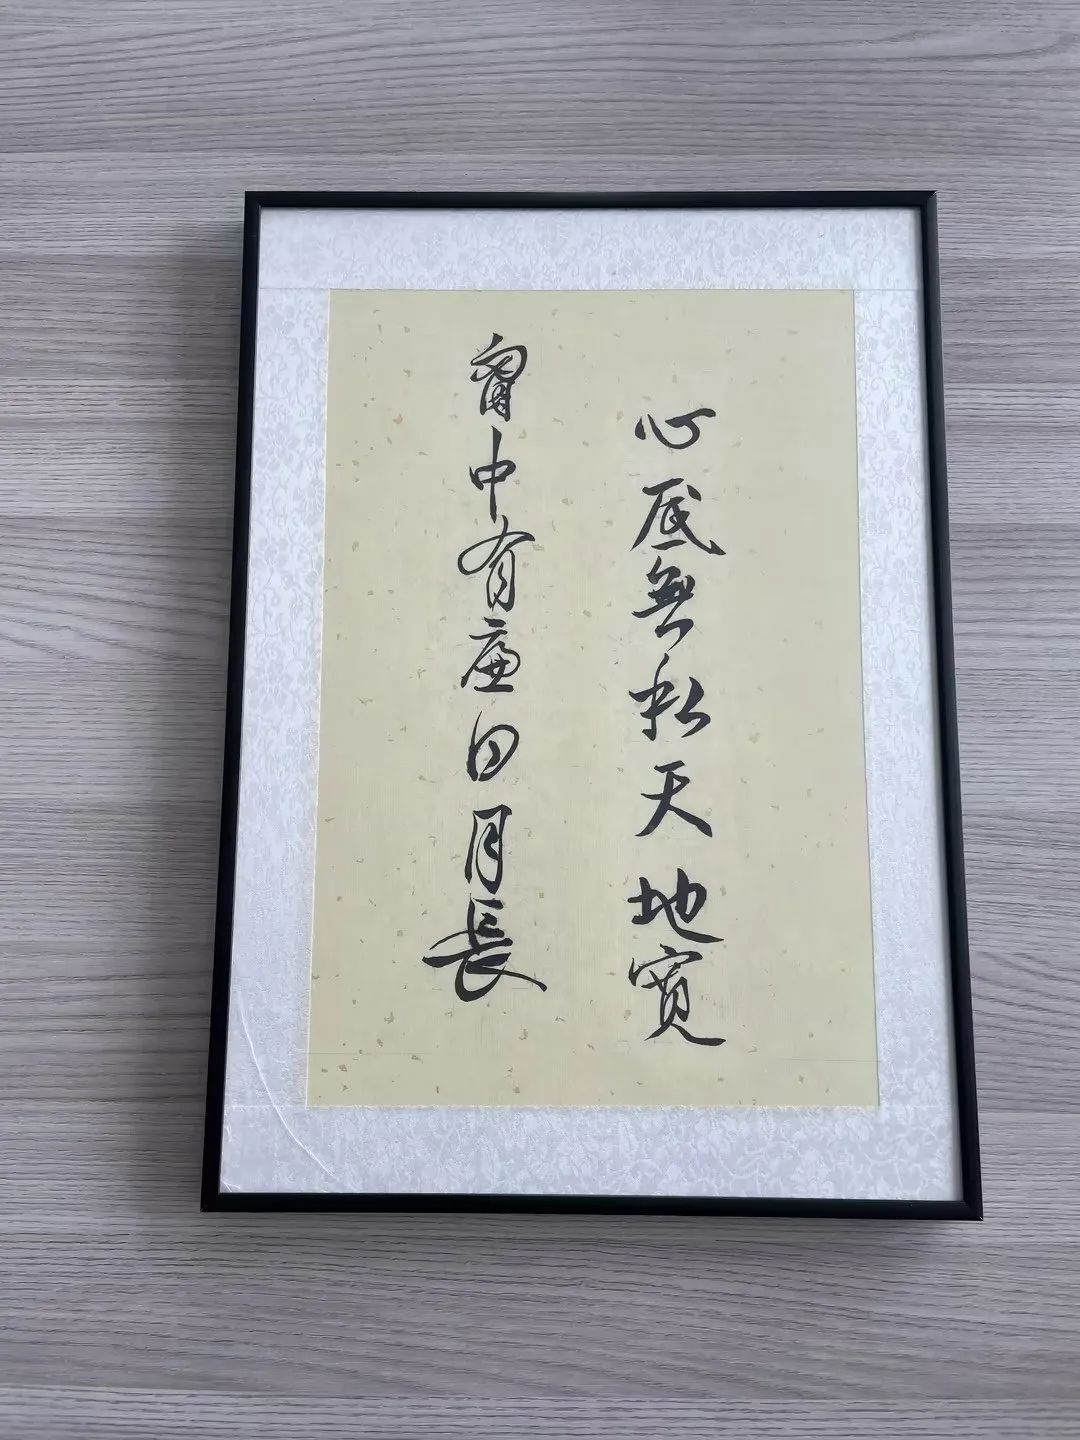 心底無私天地寬
胷中有廉日月長